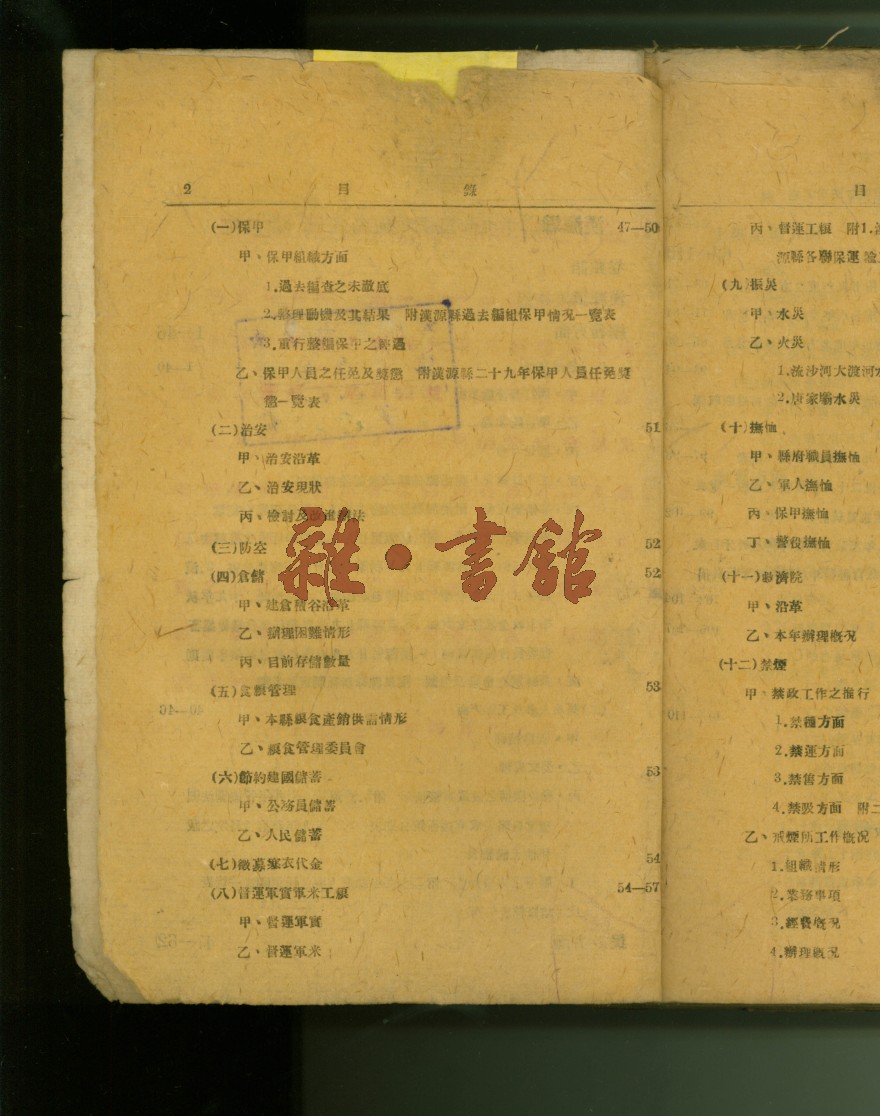 2 目 錄
(一)保甲 47—50
甲、保甲組織方面
1.過去編查之未澈底
2.整理動機及其結果 附漢源縣過去編組保甲情况一覽表
3.重行整編保甲之經過
乙、保甲人員之任免及獎懲 附漢源縣二十九年保甲人員任免獎
懲一覽表
(二)治安 51
甲、治安沿革
乙、治安現狀
丙、檢討及改進辦法
(三)防空 52
(四)倉儲 52
甲、建倉積谷沿革
乙、辦理困難情形
丙、目前存儲數量
(五)食糧管理 53
甲、本縣糧食產銷供需情形
乙、糧食管理委員會
(六)節約建國儲蓄 53
甲、公務員儲蓄
乙、人民儲蓄
(七)徵募寒衣代金 54
(八)督運軍實軍米工糧 54—57
甲、督運軍實
乙、督運軍米
雜·書館
目
丙、督運工糧 附1.
源縣各聯保運
(九)振災
甲、水災
乙、火災
1.流沙河大渡河水
2.唐家壩水災
(十)撫恤
甲、縣府職員撫恤
乙、軍人撫恤
丙、保甲撫恤
丁、警役撫恤
(十一)救濟院
甲、沿革
乙、本年辦理概况
(十二)禁煙
甲、禁政工作之推行
1.禁種方面
2.禁運方面
3.禁售方面
4.禁吸方面 附二
乙、戒煙所工作概况
1.組織情形
2.業務事項
3.經費概况
4.辦理概况